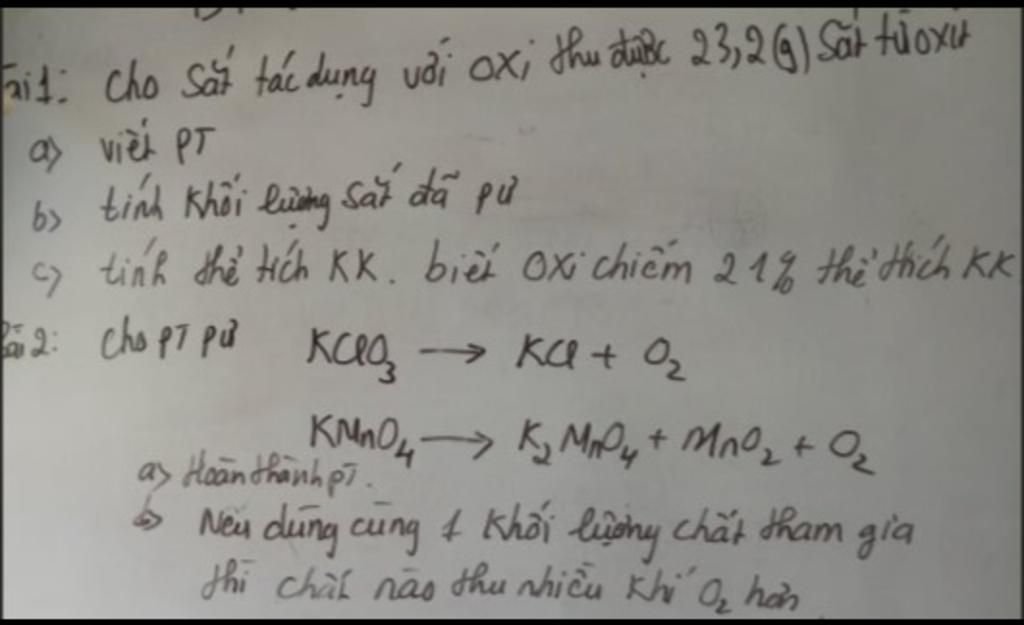 Bài 1: Cho Sắt tác dụng với Oxi thu được 23,2(g) Sắt từ oxit
a) viết PT
b) tính khối lượng Sắt đã pư
c) tính thể tích KK. biết Oxi chiếm 21% thể thích KK
Bài 2: Cho PT pư KClO₃ → KCl + O₂
KMnO₄ → K₂MnO₄ + MnO₂ + O₂
a) Hoàn thành pT.
b) Nếu dùng cùng 1 khối lượng chất tham gia
thì chất nào thu nhiều khí O₂ hơn